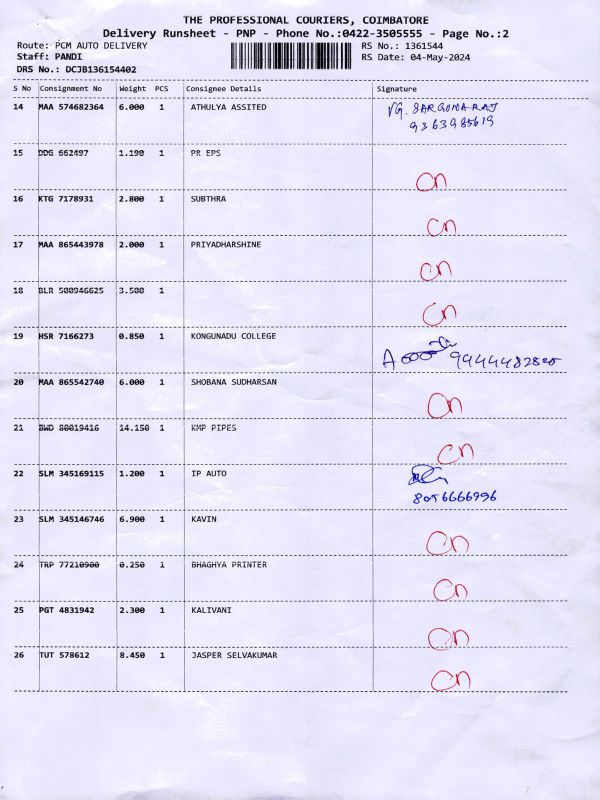 THE PROFESSIONAL COURIERS, COIMBATORE
Delivery Runsheet - PNP - Phone No.:0422-3505555 - Page No.:2
Route: PCM AUTO DELIVERY RS No.: 1361544
Staff: PANDI RS Date: 04-May-2024
DRS No.: DCJB136154402
S No Consignment No Weight PCS Consignee Details Signature
14 MAA 574682364 6.000 1 ATHULYA ASSITED
9363985619
15 DDG 662497 1.190 1 PR EPS
cn
16 KTG 7178931 2.800 1 SUBTHRA
cn
17 MAA 865443978 2.000 1 PRIYADHARSHINE
cn
18 BLR 500946625 3.500 1
cn
19 HSR 7166273 0.850 1 KONGUNADU COLLEGE
20 MAA 865542740 6.000 1 SHOBANA SUDHARSAN
cn
21 BWD 80019416 14.150 1 KMP PIPES
cn
22 SLM 345169115 1.200 1 IP AUTO
8056666996
23 SLM 345146746 6.900 1 KAVIN
cn
24 TRP 77210900 0.250 1 BHAGHYA PRINTER
cn
25 PGT 4831942 2.300 1 KALIVANI
cn
26 TUT 578612 8.450 1 JASPER SELVAKUMAR
cn